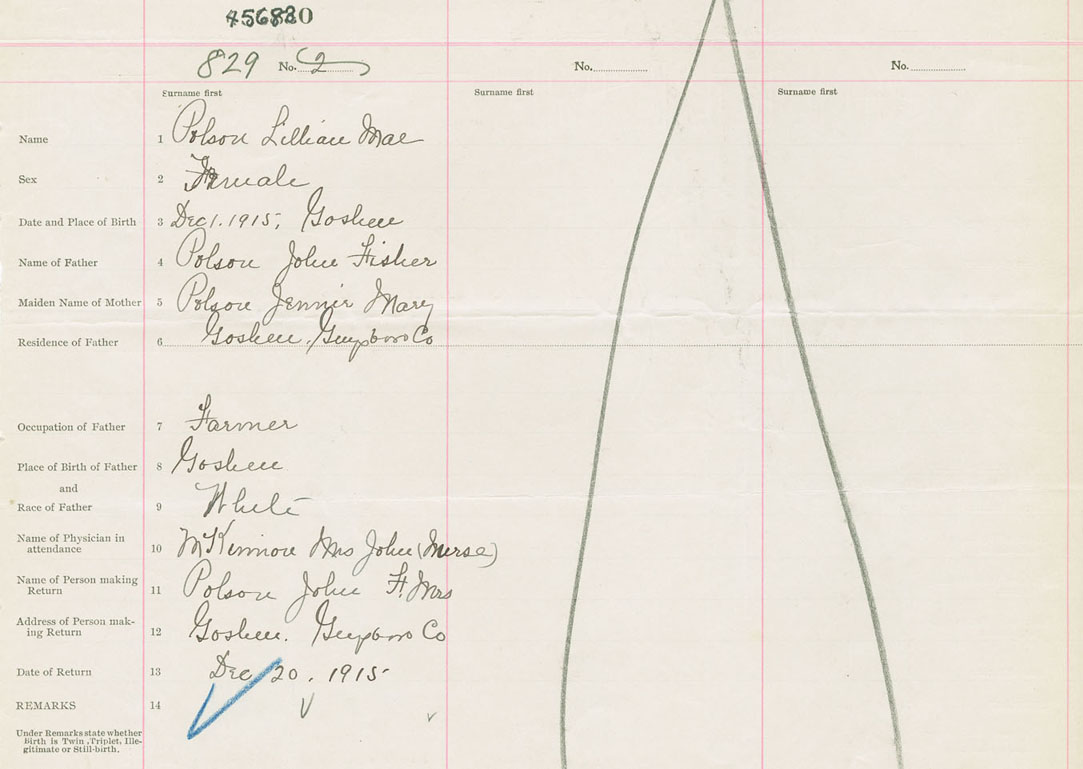 456830
829 No. 2 No. No.
Surname first Surname first Surname first
Name 1 Polson Lillian Mae
Sex 2 Female
Date and Place of Birth 3 Dec 1. 1915, Goshen
Name of Father 4 Polson John Fisher
Maiden Name of Mother 5 Polson Jennie Mary
Residence of Father 6 Goshen, Guysboro Co
Occupation of Father 7 Farmer
Place of Birth of Father 8 Goshen
and
Race of Father 9 White
Name of Physician in
attendance 10 McKinnon Mrs John (Nurse)
Name of Person making
Return 11 Polson John F. Mrs
Address of Person mak-
ing Return 12 Goshen. Guysboro Co
Date of Return 13 Dec 20, 1915
REMARKS 14
Under Remarks state whether
Birth is Twin, Triplet, Ille-
gitimate or Still-birth.